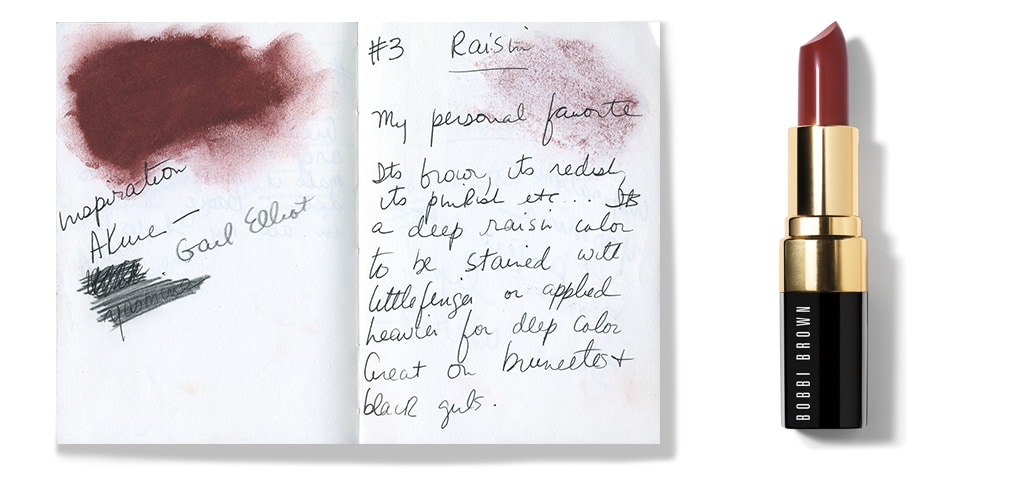 inspiration
AKure —
Gail Elliot
#3 Raisin
My personal favorite
Its brown, its redish,
its pinkish etc... Its
a deep raisin color
to be stained with
little finger or applied
heavier for deep color
Great on brunettes +
black girls.
BOBBI BROWN